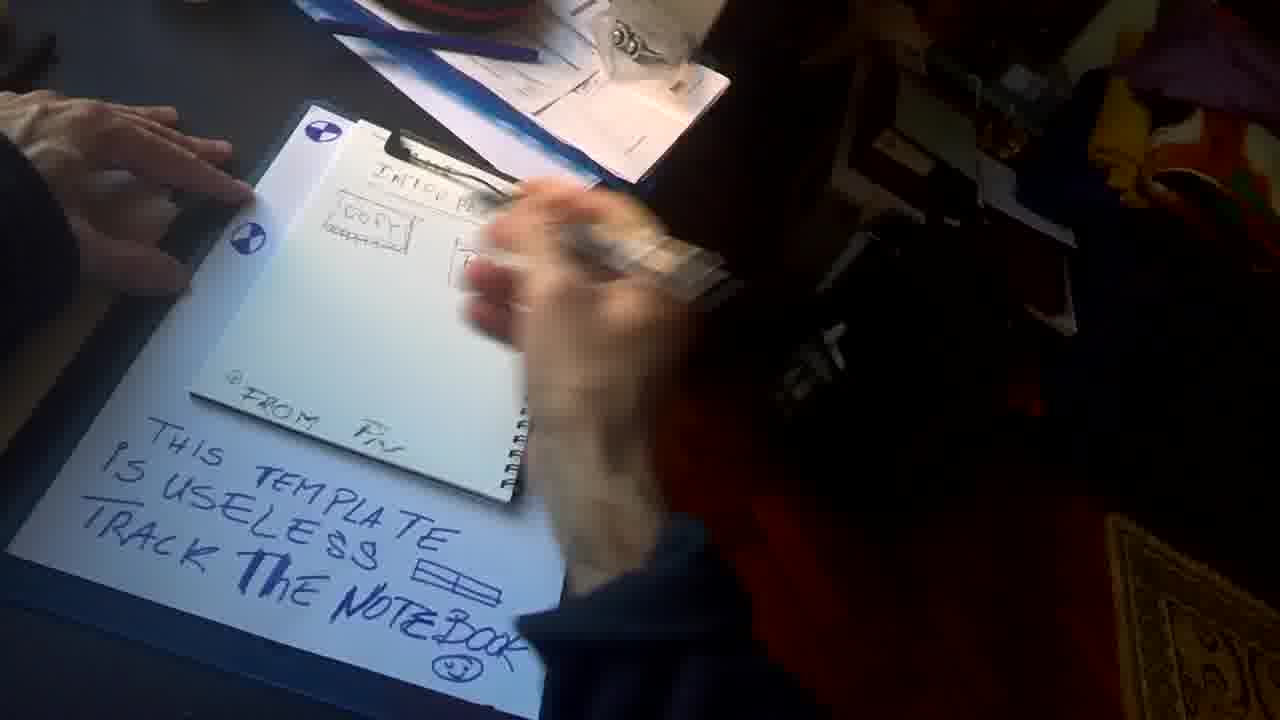 COPY
FROM
THIS TEMPLATE
IS USELESS
TRACK THE NOTEBOOK